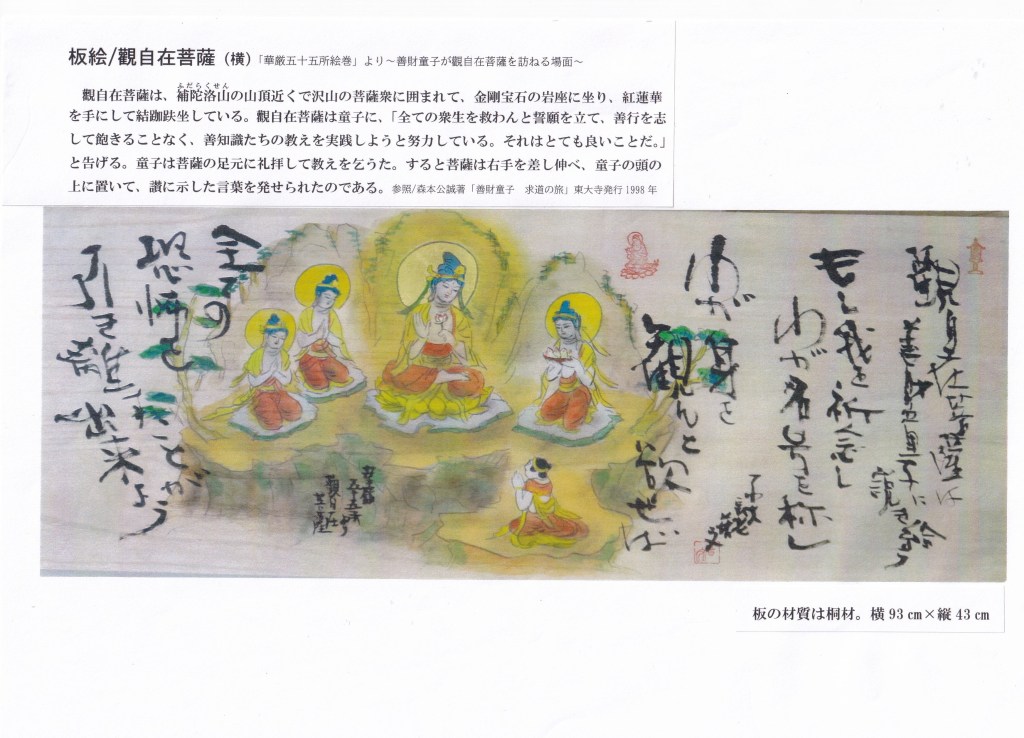 板絵/觀自在菩薩（横）「華厳五十五所絵巻」より～善財童子が觀自在菩薩を訪ねる場面～
觀自在菩薩は、補陀洛山の山頂近くで沢山の菩薩衆に囲まれて、金剛宝石の岩座に坐り、紅蓮華
ふだらくせん
を手にして結跏趺坐している。觀自在菩薩は童子に、「全ての衆生を救わんと誓願を立て、善行を志
して飽きることなく、善知識たちの教えを実践しようと努力している。それはとても良いことだ。」
と告げる。童子は菩薩の足元に礼拝して教えを乞うた。すると菩薩は右手を差し伸べ、童子の頭の
上に置いて、讃に示した言葉を発せられたのである。参照/森本公誠著「善財童子　求道の旅」東大寺発行1998年
觀自在菩薩は
善財童子に
説き給う
もし我を祈念し
わが名号を称し
わが身を
観んと欲せば
全ての
恐怖を
引き離すことが
出来よう
板の材質は桐材。横93㎝×縦43㎝